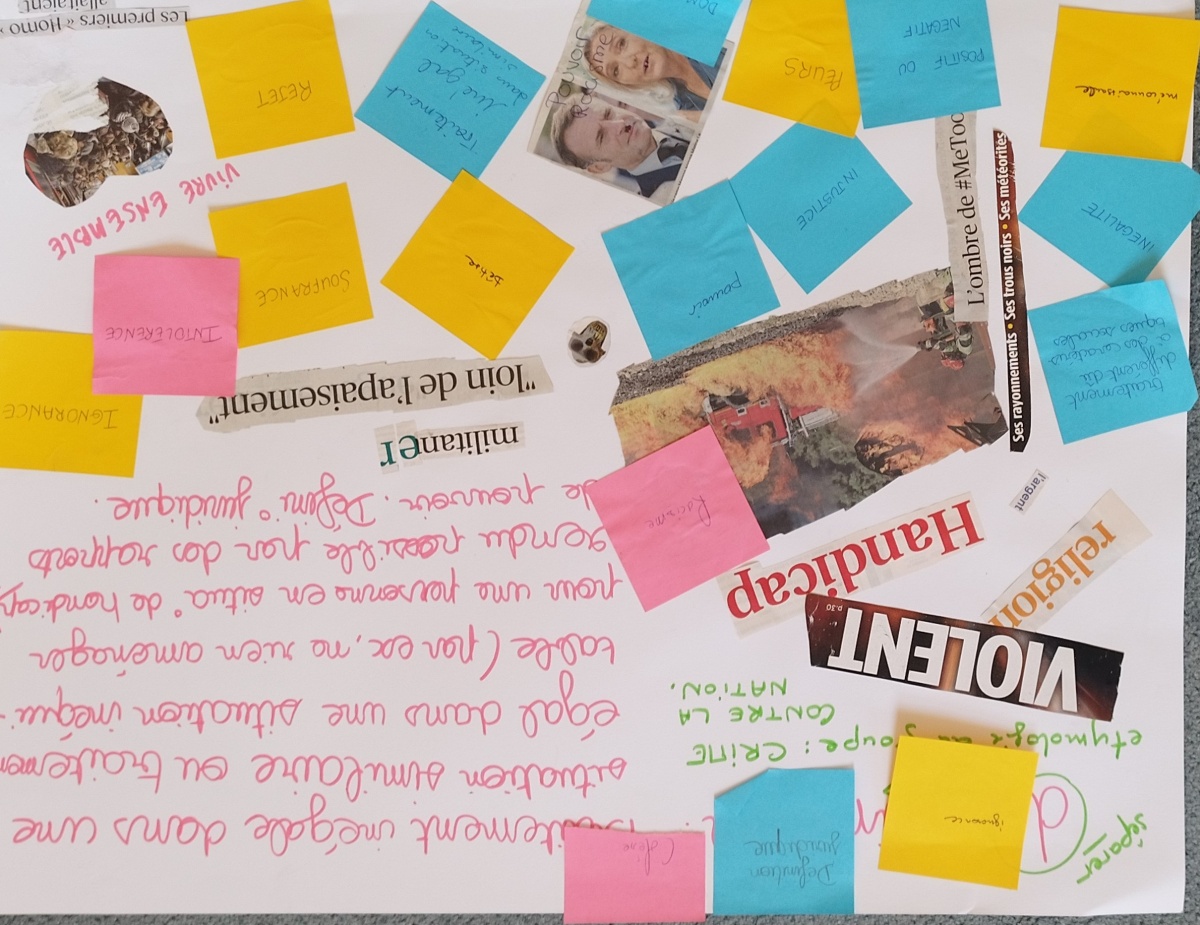 séparer
d
ignorance
Définition
juridique
Colère
inégale dans une
situation similaire ou
égal dans une situation inéqui-
table (par ex, ne rien aménager
pour une personne en situa° de handicap)
rendu possible par des rapports
de pouvoir. Défini° juridique.
etymologie : CRIME
CONTRE LA
NATION.
VIOLENT
p.30
religion
Handicap
l'argent
Racisme
militaner
"loin de l'apaisement"
IGNORANCE
INTOLÉRENCE
SOUFRANCE
VIVRE ENSEMBLE
traitement
différent dû
à des caractéris
tiques sociales
Ses rayonnements • Ses trous noirs • Ses météorites
L'ombre de #MeToo
INÉGALITÉ
INJUSTICE
pouvoir
bêtise
méconnaissance
POSITIF OU
NÉGATIF
PEURS
Pouvoir
Racisme
Traitement
dans situation
similaire
REJET
Les premiers « Homo »
allaitaient